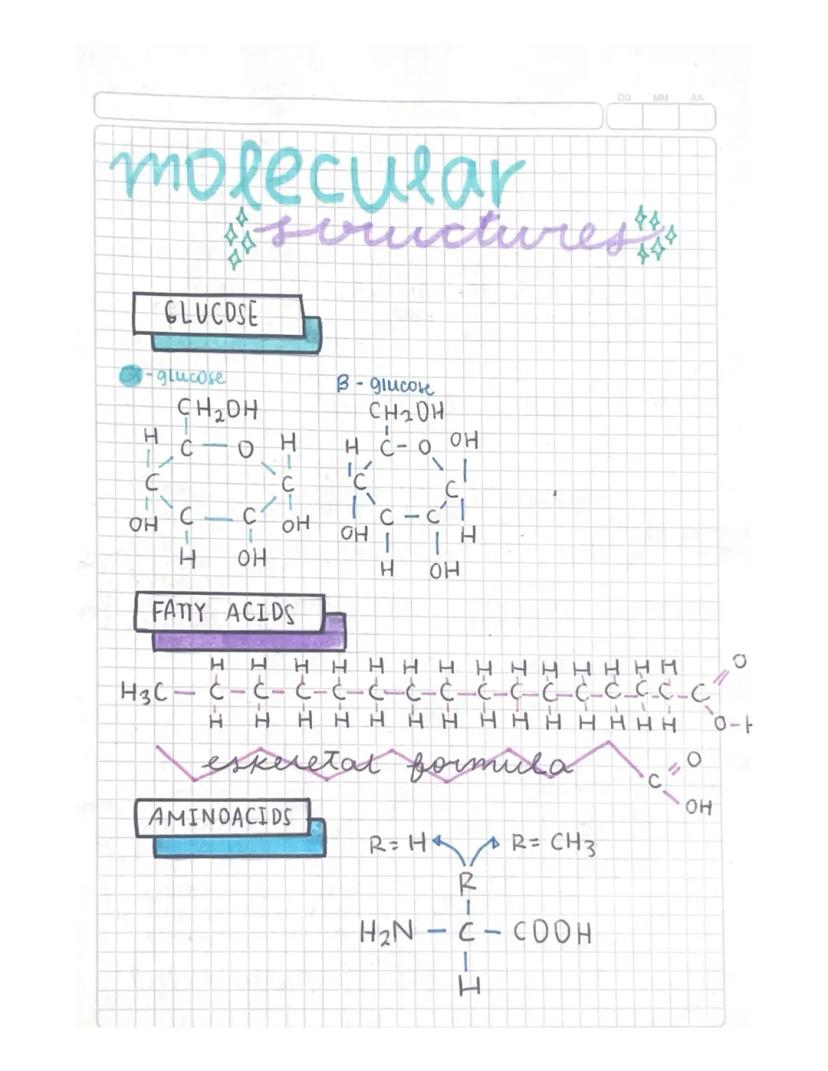 DD MM AA
molecular
structures
GLUCOSE
α-glucose
β-glucose
CH2OH
H C O H
C C
OH C C OH
H OH
CH2OH
H C-O OH
C C
OH C-C H
H OH
FATTY ACIDS
H H H H H H H H H H H H H H
H3C-C-C-C-C-C-C-C-C-C-C-C-C-C-C-C=O
H H H H H H H H H H H H H H O-H
eskeletal formula C=O
OH
AMINOACIDS
R=H R=CH3
R
H2N-C-COOH
H